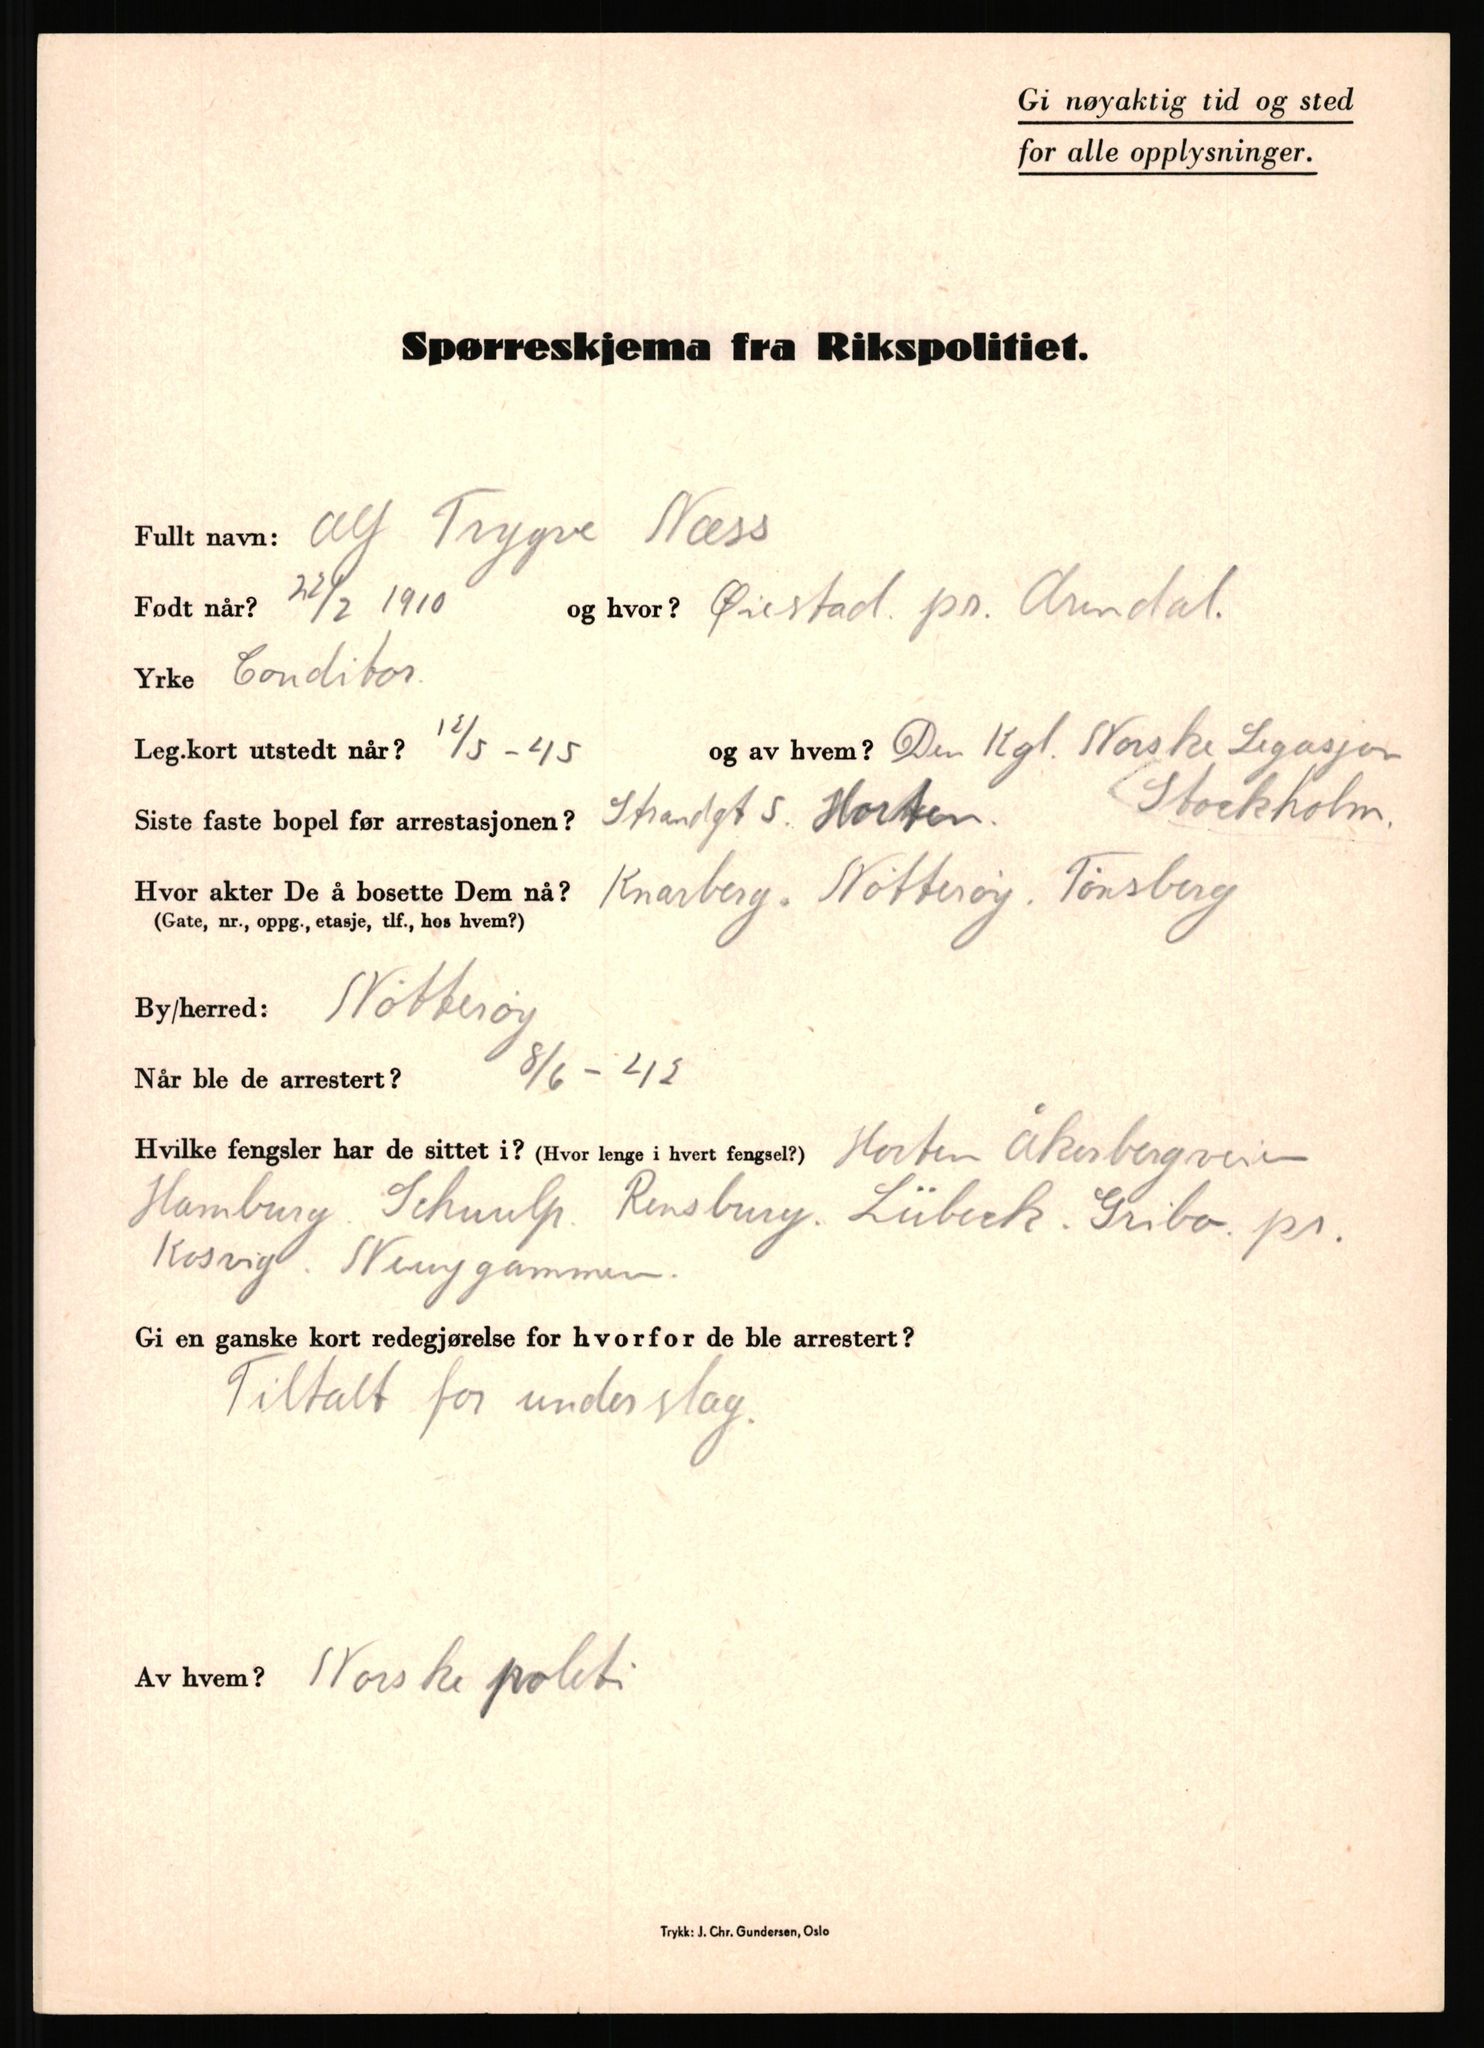 Gi nøyaktig tid og sted
for alle opplysninger.
Spørreskjema fra Rikspolitiet.
Fullt navn: Alf Trygve Næss
Født når? 22/2 1910 og hvor? Øiestad. pr. Arendal.
Yrke Conditor.
Leg.kort utstedt når? 12/5 - 45 og av hvem? Den Kgl. Norske Legasjon
Stockholm.
Siste faste bopel før arrestasjonen? Strandgt 5. Horten.
Hvor akter De å bosette Dem nå? Knarberg. Nötteröy. Tönsberg
(Gate, nr., oppg., etasje, tlf., hos hvem?)
By/herred: Nötteröy
Når ble de arrestert? 8/6 - 42
Hvilke fengsler har de sittet i? (Hvor lenge i hvert fengsel?) Horten Åkerbergveien
Hamburg. Rensburg. Lübeck. Gribo. pr.
Kosvig. Neuygammen.
Gi en ganske kort redegjørelse for hvorfor de ble arrestert?
Tiltalt for underslag.
Av hvem? Norske politi
Trykk: J. Chr. Gundersen, Oslo